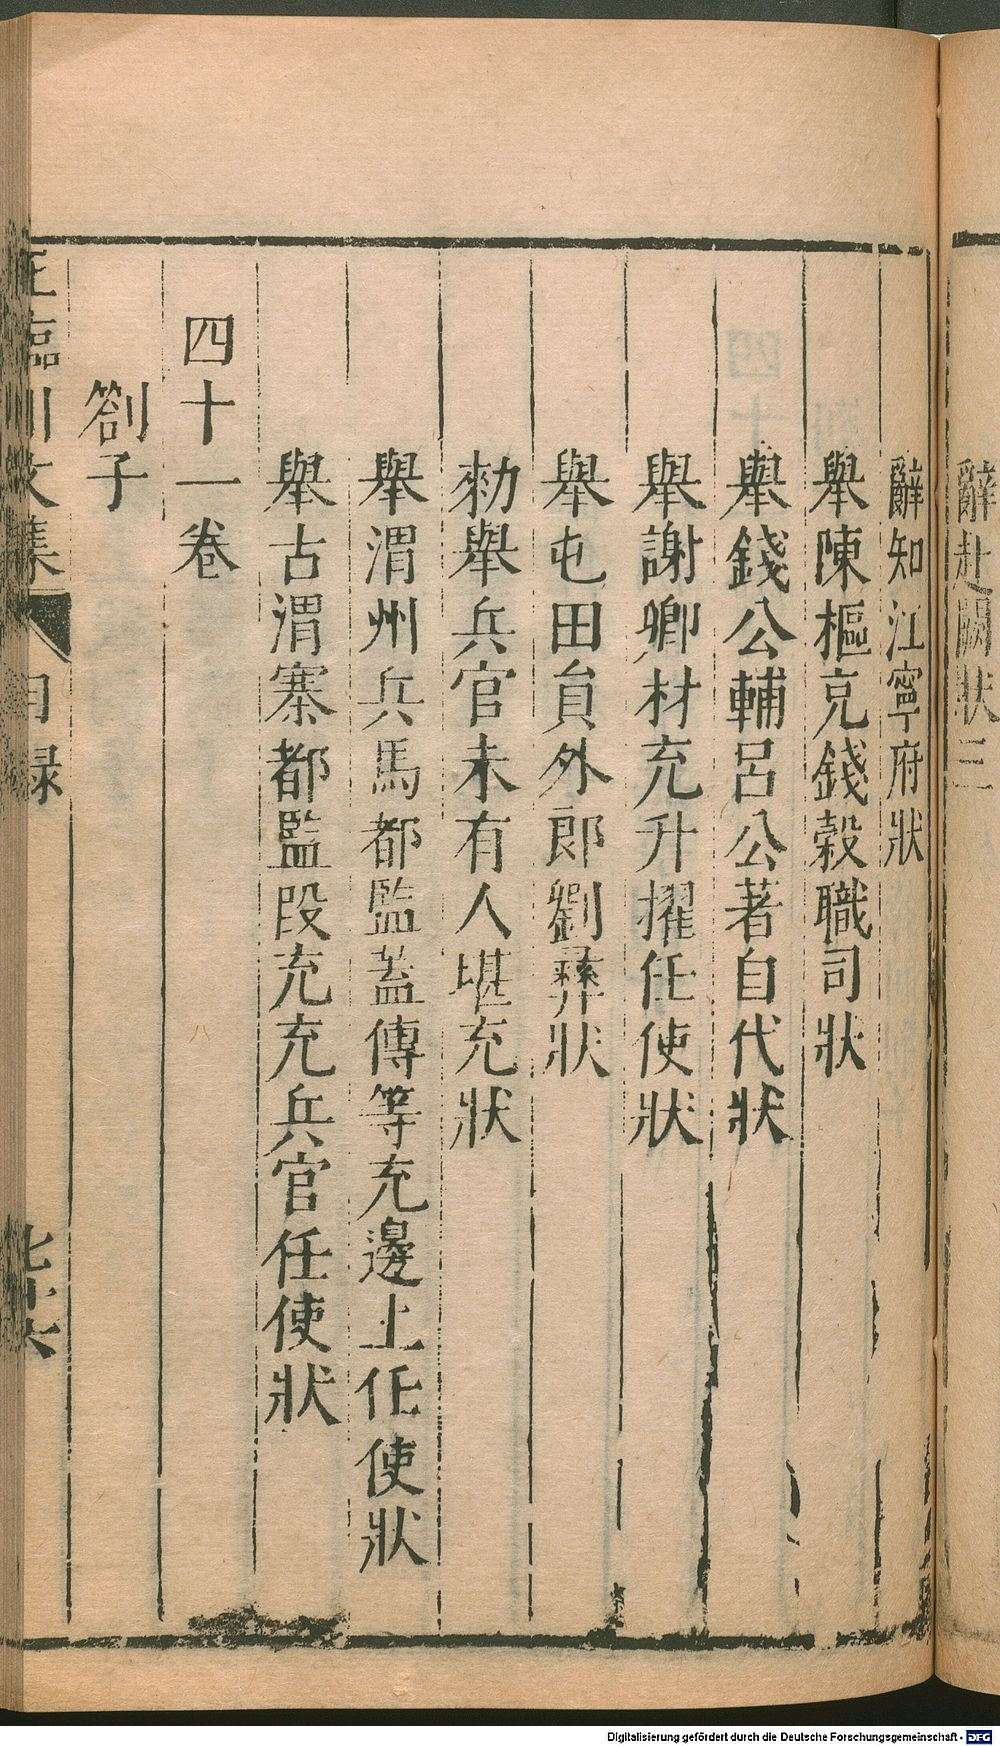 辭赴闕狀三
辭知江寧府狀
舉陳樞充錢穀職司狀
舉錢公輔呂公著自代狀
舉謝卿材充升擢任使狀
舉屯田員外郎劉彝狀
勑舉兵官未有人堪充狀
舉渭州兵馬都監蓋傳等充邊上任使狀
舉古渭寨都監段充充兵官任使狀
四十一卷
劄子
王臨川文集 目録
Digitalisierung gefördert durch die Deutsche Forschungsgemeinschaft - DFG